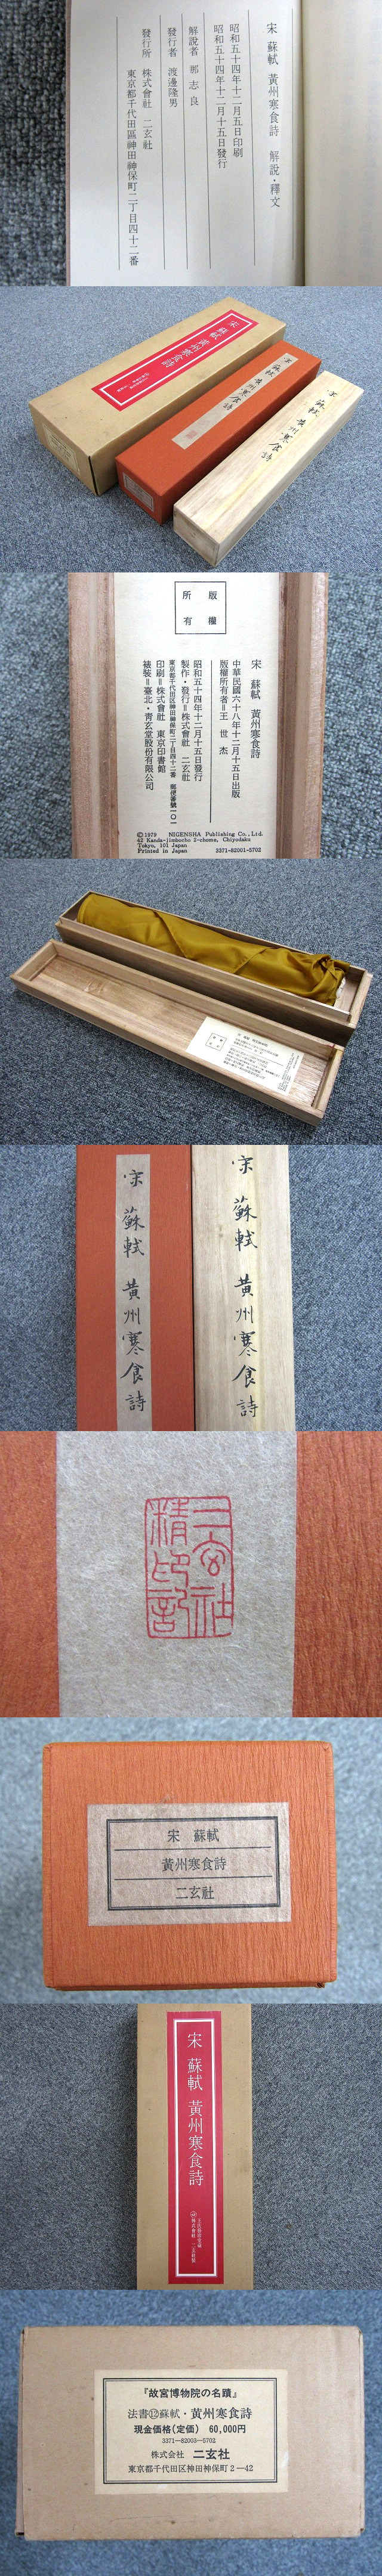 宋 蘇軾 黃州寒食詩 解説・釋文
昭和五十四年十二月五日印刷
昭和五十四年十二月十五日發行
解說者 那 志 良
發行者 渡邊隆男
發行所 株式會社 二玄社
東京都千代田區神田神保町二丁目四十二番
宋 蘇軾 黃州寒食詩
宋 蘇軾 黃州寒食詩
宋 蘇軾 黃州寒食詩
版權
所有
宋 蘇軾 黃州寒食詩
中華民國六十八年十二月十五日出版
版權所有者＝王 世 杰
昭和五十四年十二月十五日發行
製作・發行＝株式會社 二玄社
東京都千代田区神田神保町二丁目四十二番 郵便番號一〇一
印刷＝株式會社 東京印書館
裱裝＝臺北・靑玄堂股份有限公司
©1979 NIGENSHA Publishing Co., Ltd.
42 Kanda-Jimbocho 2-chome, Chiyodaku
Tokyo, 101 Japan
Printed in Japan 3371-82001-5702
宋 蘇軾 黃州寒食詩
宋 蘇軾 黃州寒食詩
二玄社
精印記
宋 蘇軾
黃州寒食詩
二玄社
宋 蘇軾 黃州寒食詩
『故宮博物院の名蹟』
法書⑫蘇軾・黄州寒食詩
現金価格(定価) 60,000円
3371―82003―5702
株式会社 二玄社
東京都千代田区神田神保町2―42